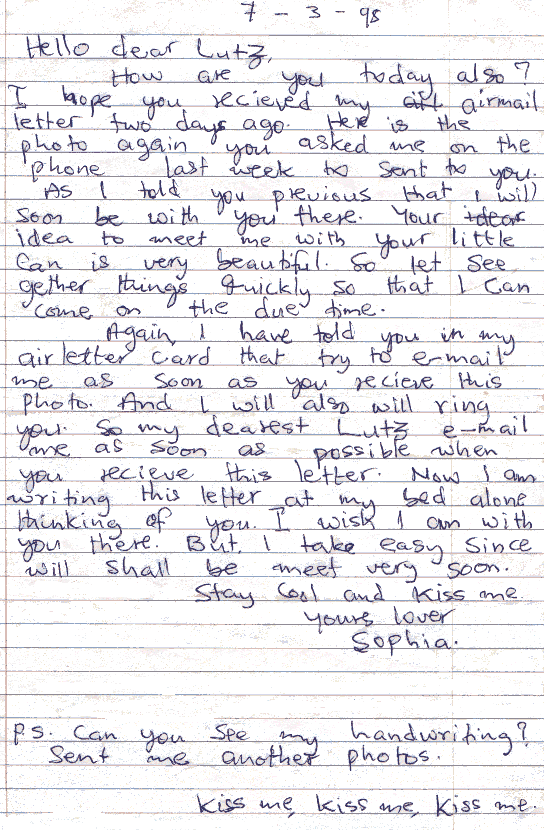 7 - 3 - 98
Hello dear Lutz,
How are you today also?
I hope you recieved my airmail
letter two days ago. Here is the
photo again you asked me on the
phone last week to sent to you.
As I told you previous that I will
soon be with you there. Your
idea to meet me with your little
Can is very beautiful. So let see
gether things quickly so that I can
come on the due time.
Again, I have told you in my
air letter card that try to e-mail
me as soon as you recieve this
photo. And I will also will ring
you. So my dearest Lutz e-mail
me as soon as possible when
you recieve this letter. Now I am
writing this letter at my bed alone
thinking of you. I wish I am with
you there. But, I take easy since
will shall be meet very soon.
Stay Cool and Kiss me.
yours lover
Sophia.
P.S. Can you see my handwriting?
Sent me another photos.
Kiss me, Kiss me, Kiss me.